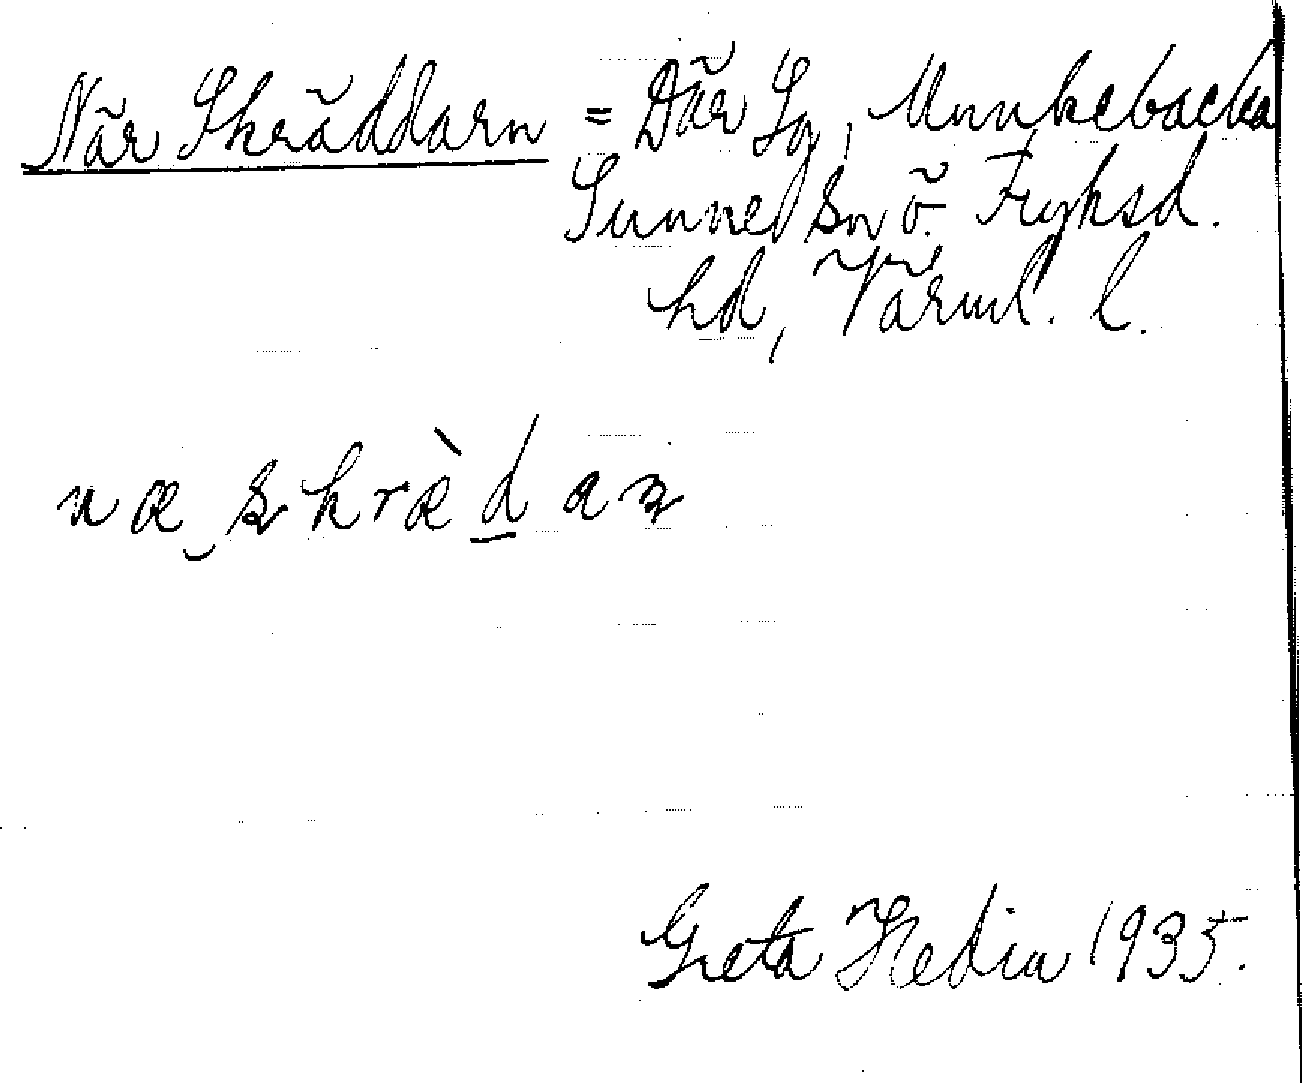 När Skräddarn = Där Sö, Munkebacka
Sunne Sn ö. Fryksd.
hd, Värml. l.
Greta Hedin 1935.